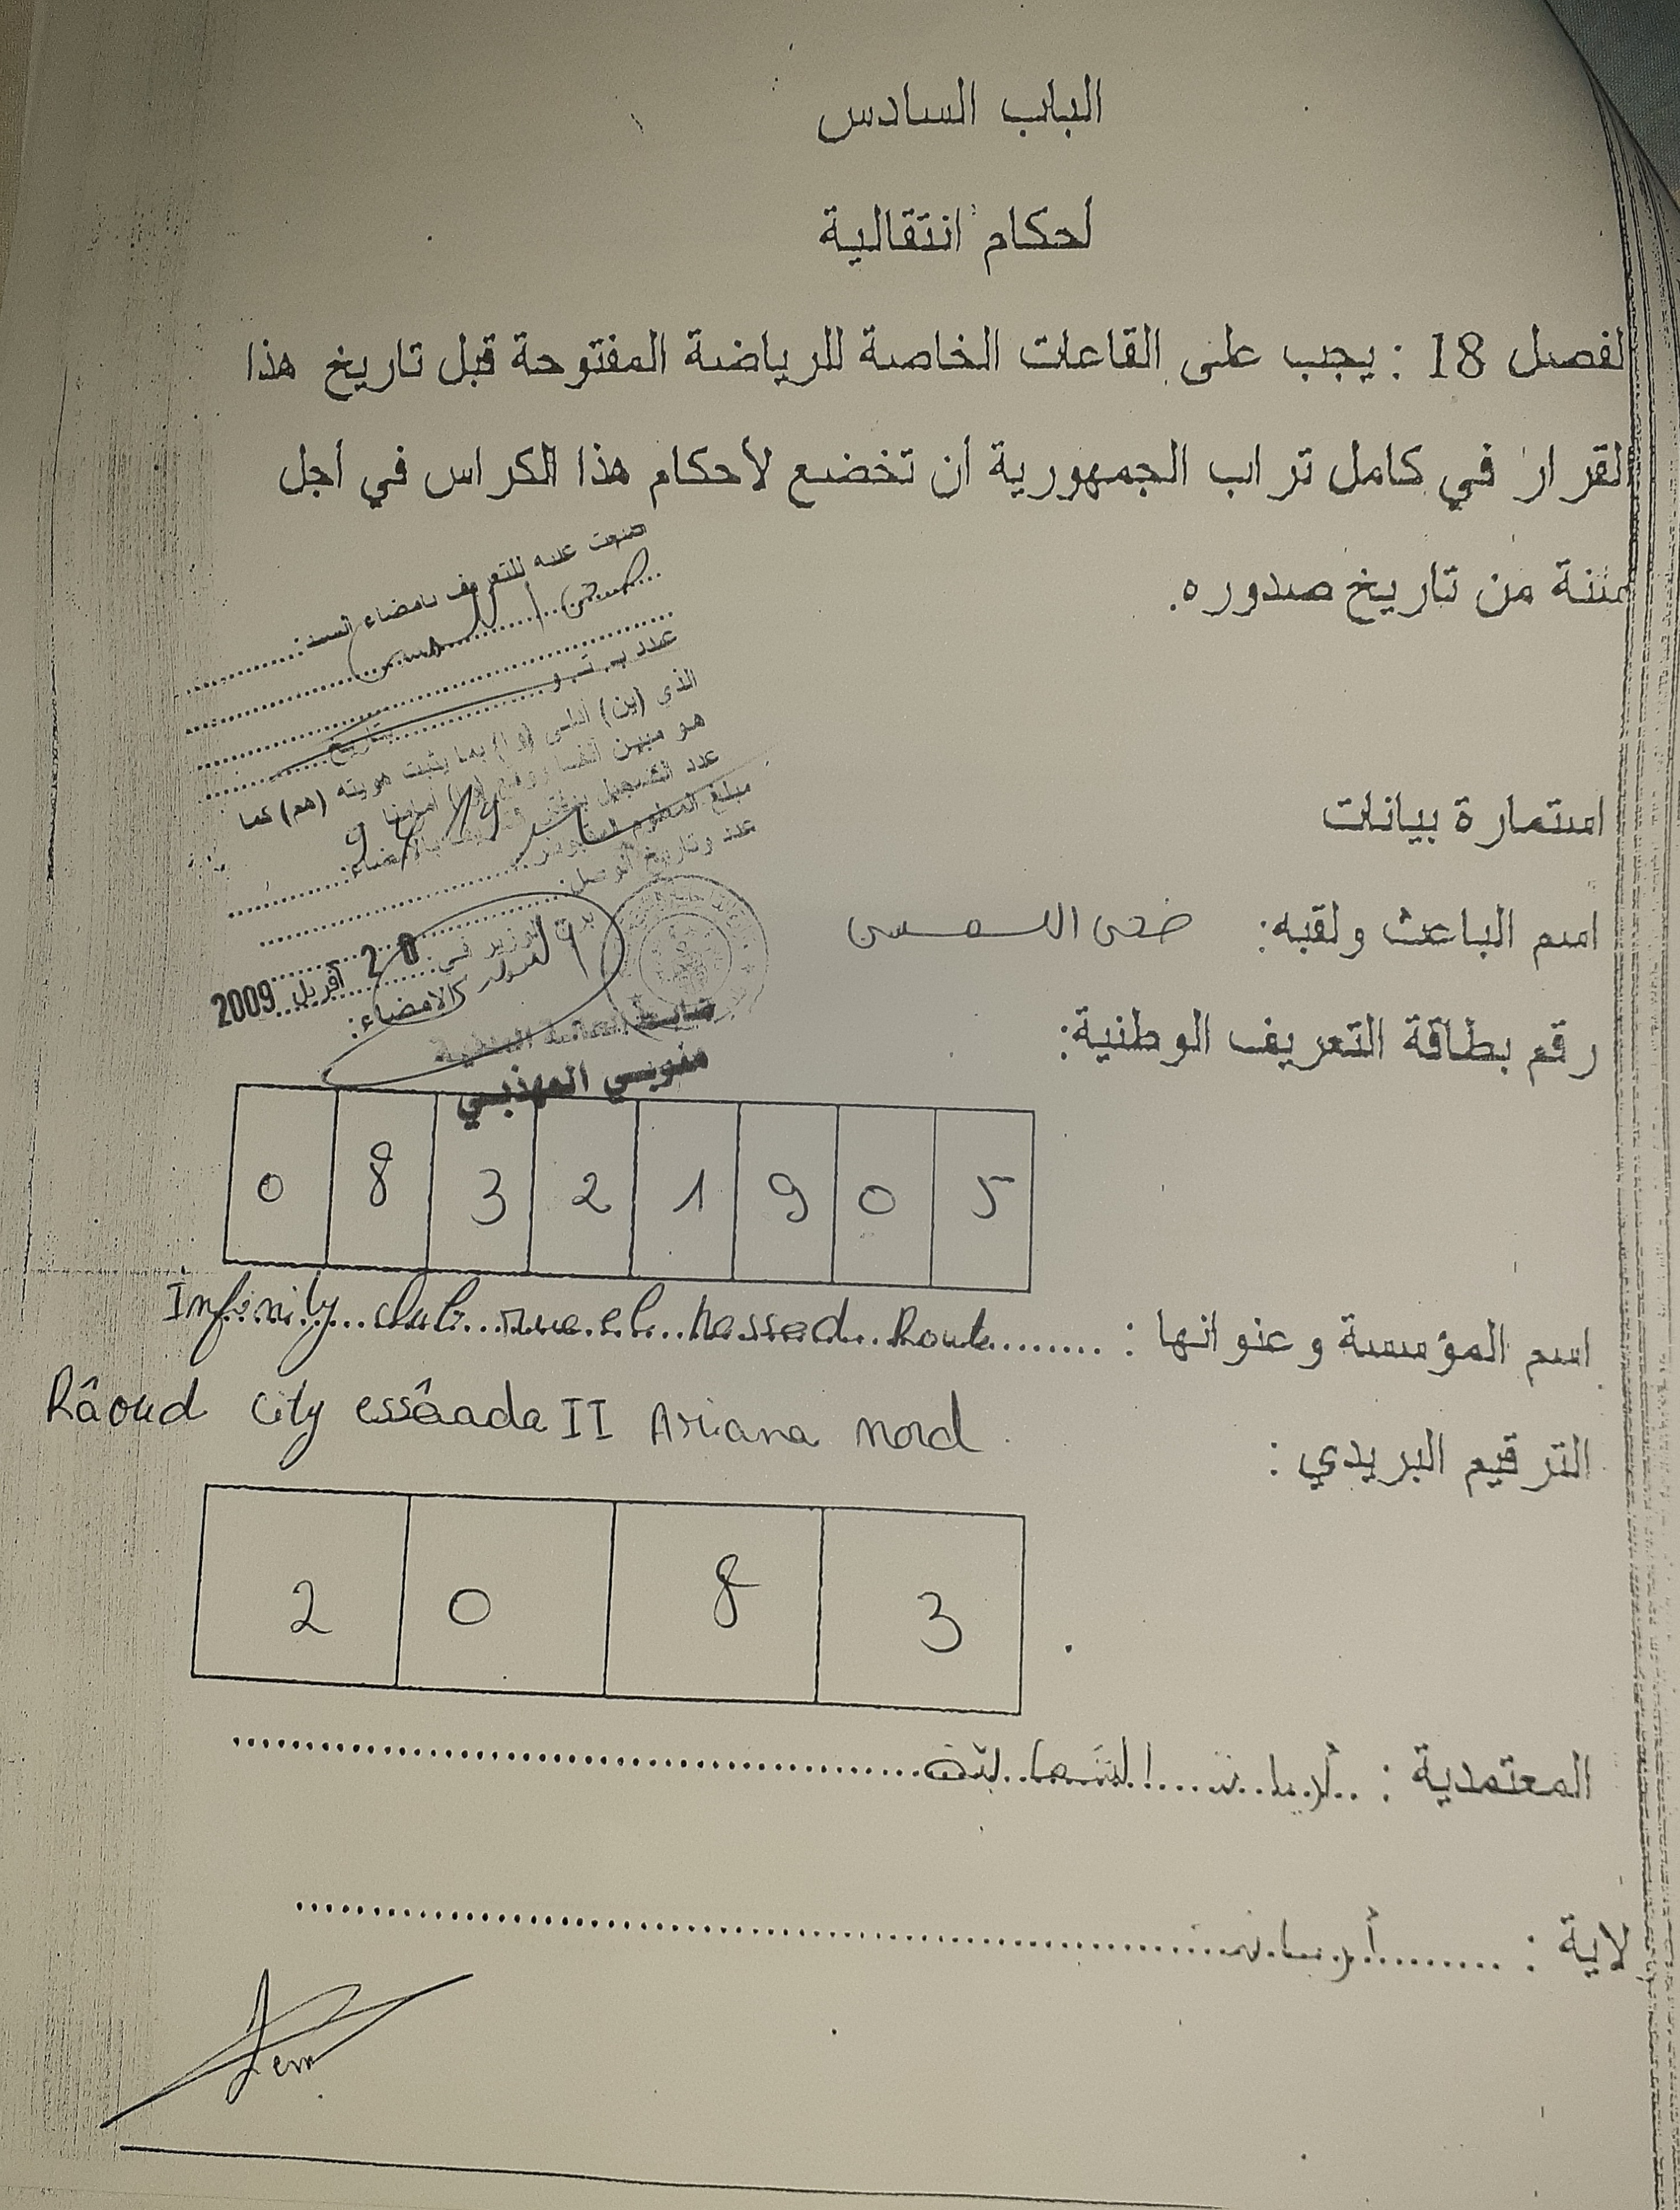 الباب السادس
أحكام انتقالية
لفصل 18 : يجب على القاعات الخاصة للرياضة المفتوحة قبل تاريخ هذا
القرار في كامل تراب الجمهورية أن تخضع لأحكام هذا الكراس في أجل
سنة من تاريخ صدوره.
للتعريف بامضاء السيد:
عدد ب ت و
بتاريخ
الذي (ين) أدلى (وا) بما يثبت هويته (هم) كما
هو مبين آنفا
عدد وتاريخ الوصل:
20 أفريل 2009
الامضاء:
ضابط الحالة المدنية
منوبي المهذبي
استمارة بيانات
اسم الباعث ولقبه: ضحى
رقم بطاقة التعريف الوطنية:
0 8 3 2 1 9 0 5
اسم المؤسسة وعنوانها : Infinity club rue el hassed Route
Râoud city essâada II Ariana Nord
الترقيم البريدي :
2 0 8 3
المعتمدية : أريانة الشمالية
لاية : أريانة